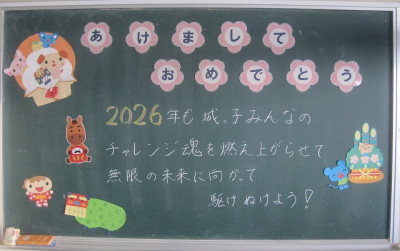 あけまして
おめでとう
2026年も城っ子みんなの
チャレンジ魂を燃え上がらせて
無限の未来に向かって
駆けぬけよう!